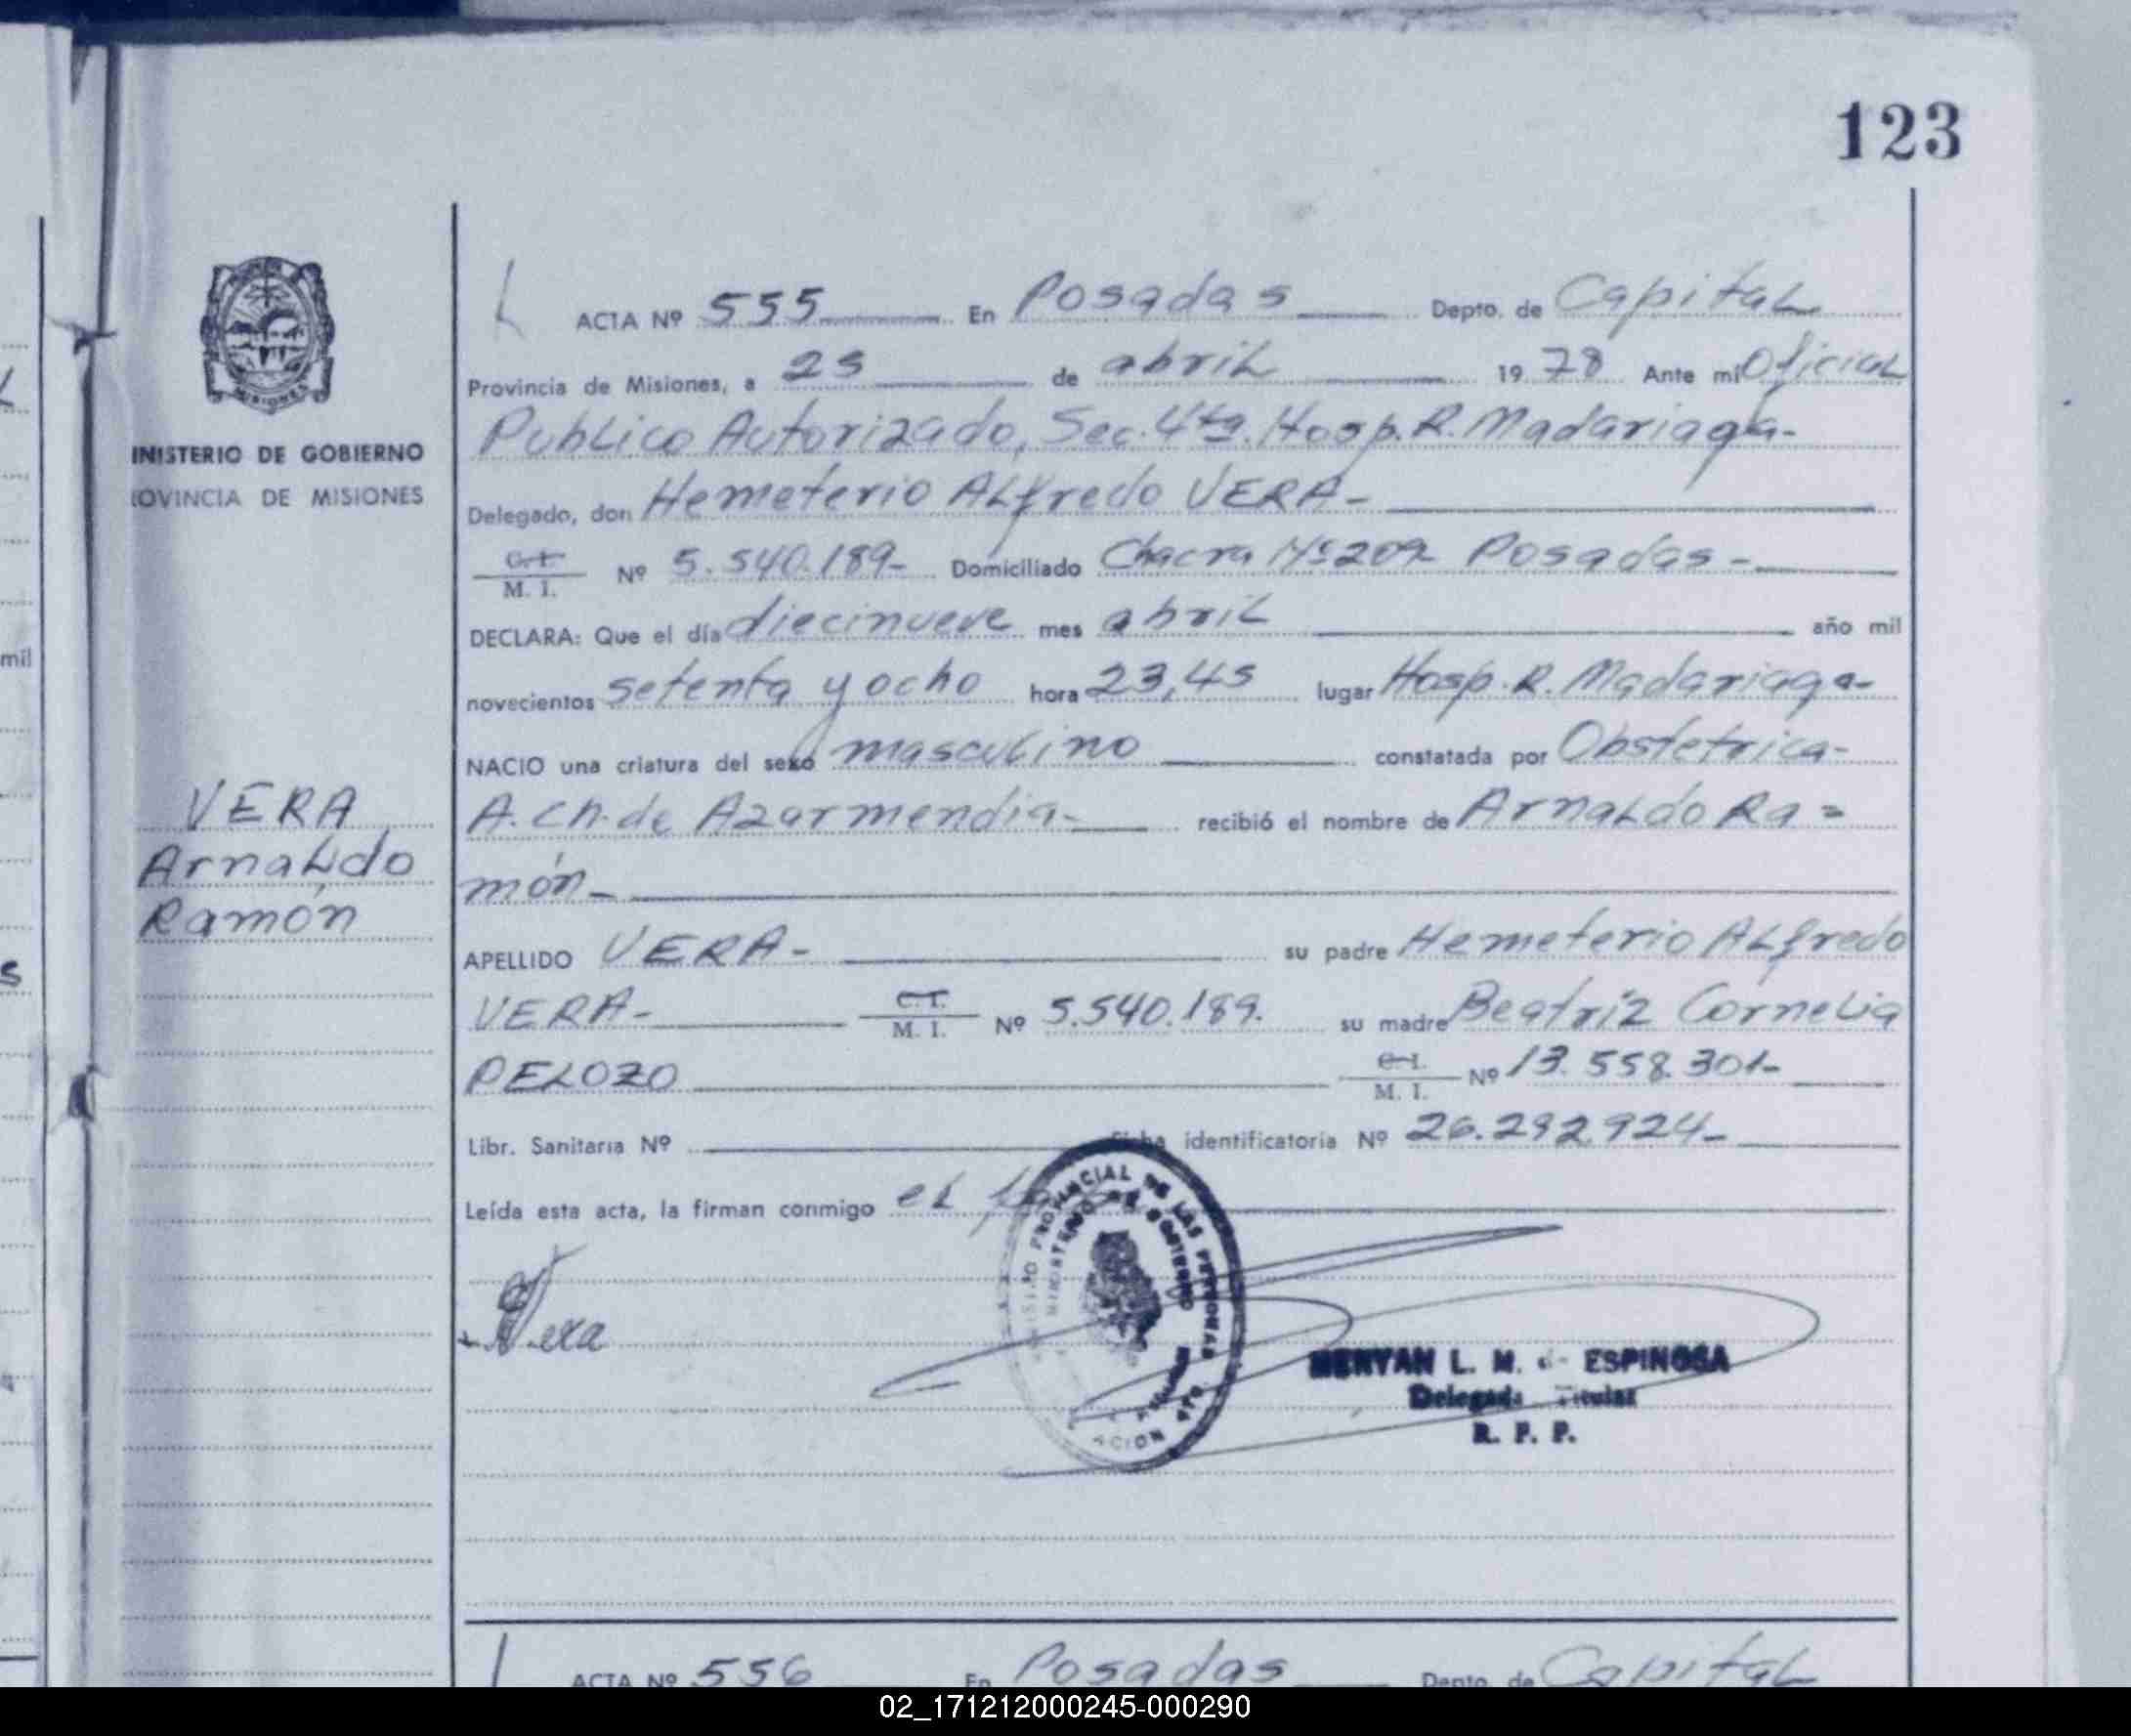 123
ACTA Nº 555 En Posadas Depto. de Capital
Provincia de Misiones, a 25 de abril 1978 Ante mi Oficial
Publico Autorizado, Sec. 4ta. Hosp. R. Madariaga-
Delegado, don Hemeterio Alfredo VERA-
C.I. M. I. Nº 5.540.189- Domiciliado Chacra Nº 209 Posadas-
DECLARA: Que el día diecinueve mes abril año mil
novecientos setenta y ocho hora 23,45 lugar Hosp. R. Madariaga-
NACIO una criatura del sexo masculino constatada por Obstetrica-
A. Ch. de Azarmendia- recibió el nombre de Arnaldo Ra=
món-
APELLIDO VERA- su padre Hemeterio Alfredo
VERA- C.I. M. I. Nº 5.540.189. su madre Beatriz Cornelia
PELOZO C.I. M. I. Nº 13.558.301-
Libr. Sanitaria Nº identificatoria Nº 26.292.924-
Leída esta acta, la firman conmigo el
Vera
PROVINCIAL DE LAS PERSONAS
MINISTERIO DE GOBIERNO
L. M. de ESPINOSA
Delegada Titular
R. P. P.
MISIONES
INISTERIO DE GOBIERNO
ROVINCIA DE MISIONES
VERA
Arnaldo
Ramón
mil
s
ACTA Nº 556 En Posadas Depto. de Capital
02_171212000245-000290